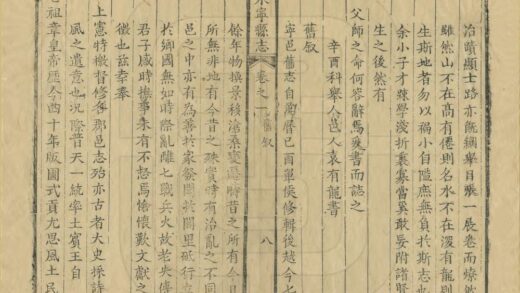 治蹟顯士路亦既綱舉目張一展卷而燎然
雖然山不在高有僊則名水不在深有龍則
生斯地者勿以褊小自隘庶無負於斯志也
余小子才疎學淺折寡當冀敢妄附諸賢
生之後然有
父師之命何容辭焉爰書而誌之
辛酉科舉人邑人袁有龍書
舊叙
寧邑舊志自萬曆己酉單侯修輯後越今七
寧縣志 卷之一 舊叙 八
餘年物換景移滄桑變遷疇昔之所有今
所無非地有今昔之殊實時有治亂之不同
邑之中亦有為善於家發聞於閭里砥行立
於鄉國無如時際亂離七職兵火故老失傳
君子感時撫事未有不惄焉愴懷歎文獻之
徵也茲幸奉
上憲特檄督修各郡邑志殆亦古者大史採詩
風之遺意也況際普天一統率土賓王自
章皇帝歷今四十年版圖式貢尤思風土民